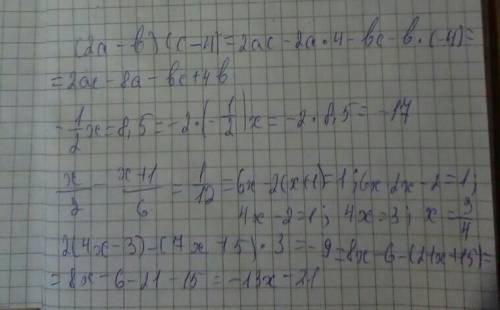 (2a - b) (c - 4) = 2ac - 2a · 4 - bc - b · (-4) =
= 2ac - 8a - bc + 4b
- 1/2 x = 8,5 = -2 · (- 1/2) x = -2 · 8,5 = -17
x/2 - x+1/6 = 1/12 = 6x - 2(x+1) = 1; 6x 2x - 2 = 1;
4x - 2 = 1; 4x = 3; x = 3/4
2(4x - 3) - (7x + 5) · 3 = -9 = 8x - 6 - (21x + 15) =
= 8x - 6 - 21 - 15 = -13x - 21